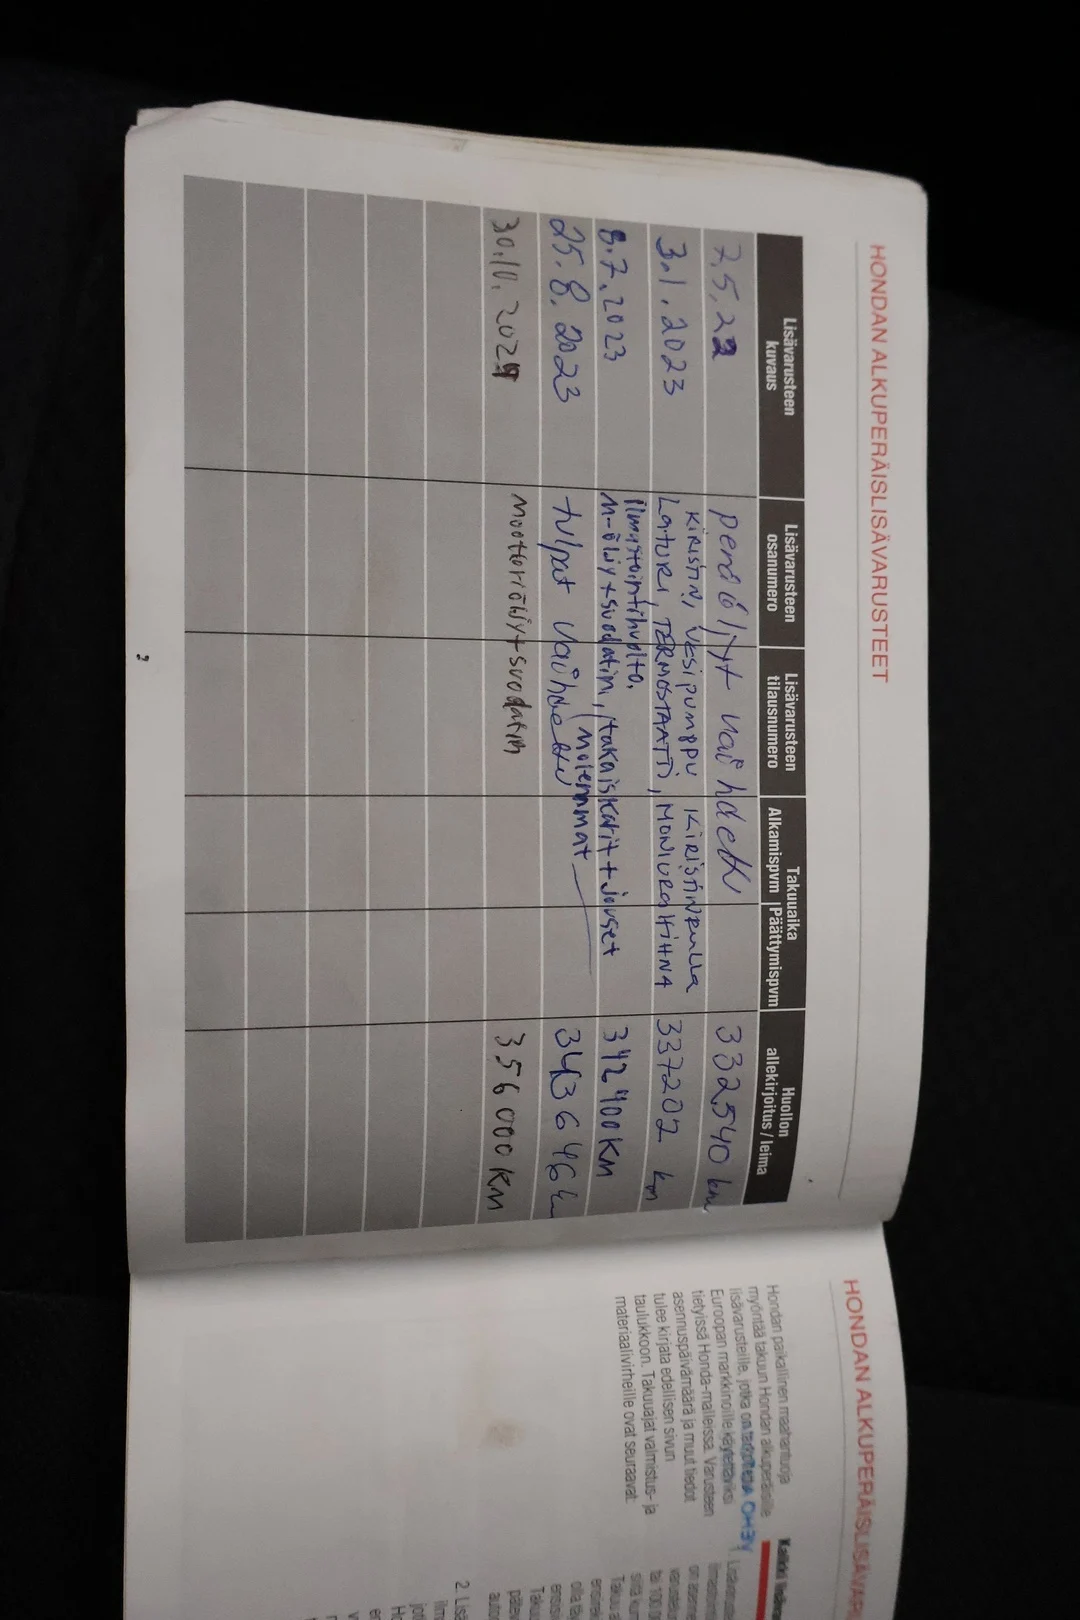 HONDAN ALKUPERÄISLISÄVARUSTEET
Lisävarusteen kuvaus
Lisävarusteen osanumero
Lisävarusteen tilausnumero
Takuuaika
Alkamispvm Päättymispvm
Huollon allekirjoitus / leima
2.5.22 peräöljyt vaihdettu 332540 km
KIRISTIN, VESIPUMPPU KIRISTINRULLA
3.1.2023 LATURI, TERMOSTAATTI, MONIURAHIHNA 337202 km
Ilmastointihuolto,
8.7.2023 M-öljy+suodatin, takaiskarit+jouset 342400 KM
molemmat
25.8.2023 tulpat vaihdettu 343646
30.10.2024 moottoriöljy+suodatin 356000 KM
HONDAN ALKUPERÄISLISÄVAR
Hondan paikallinen maahantuoja
myöntää takuun Hondan alkuperäisille
lisävarusteille, jotka on tarkoitettu
Euroopan markkinoille käytettäviksi
tietyissä Honda-malleissa. Varusteen
asennuspäivämäärä ja muut tiedot
tulee kirjata edellisen sivun
taulukkoon. Takuuajat valmistus- ja
materiaalivirheille ovat seuraavat:
Kaikki
2. Lisä